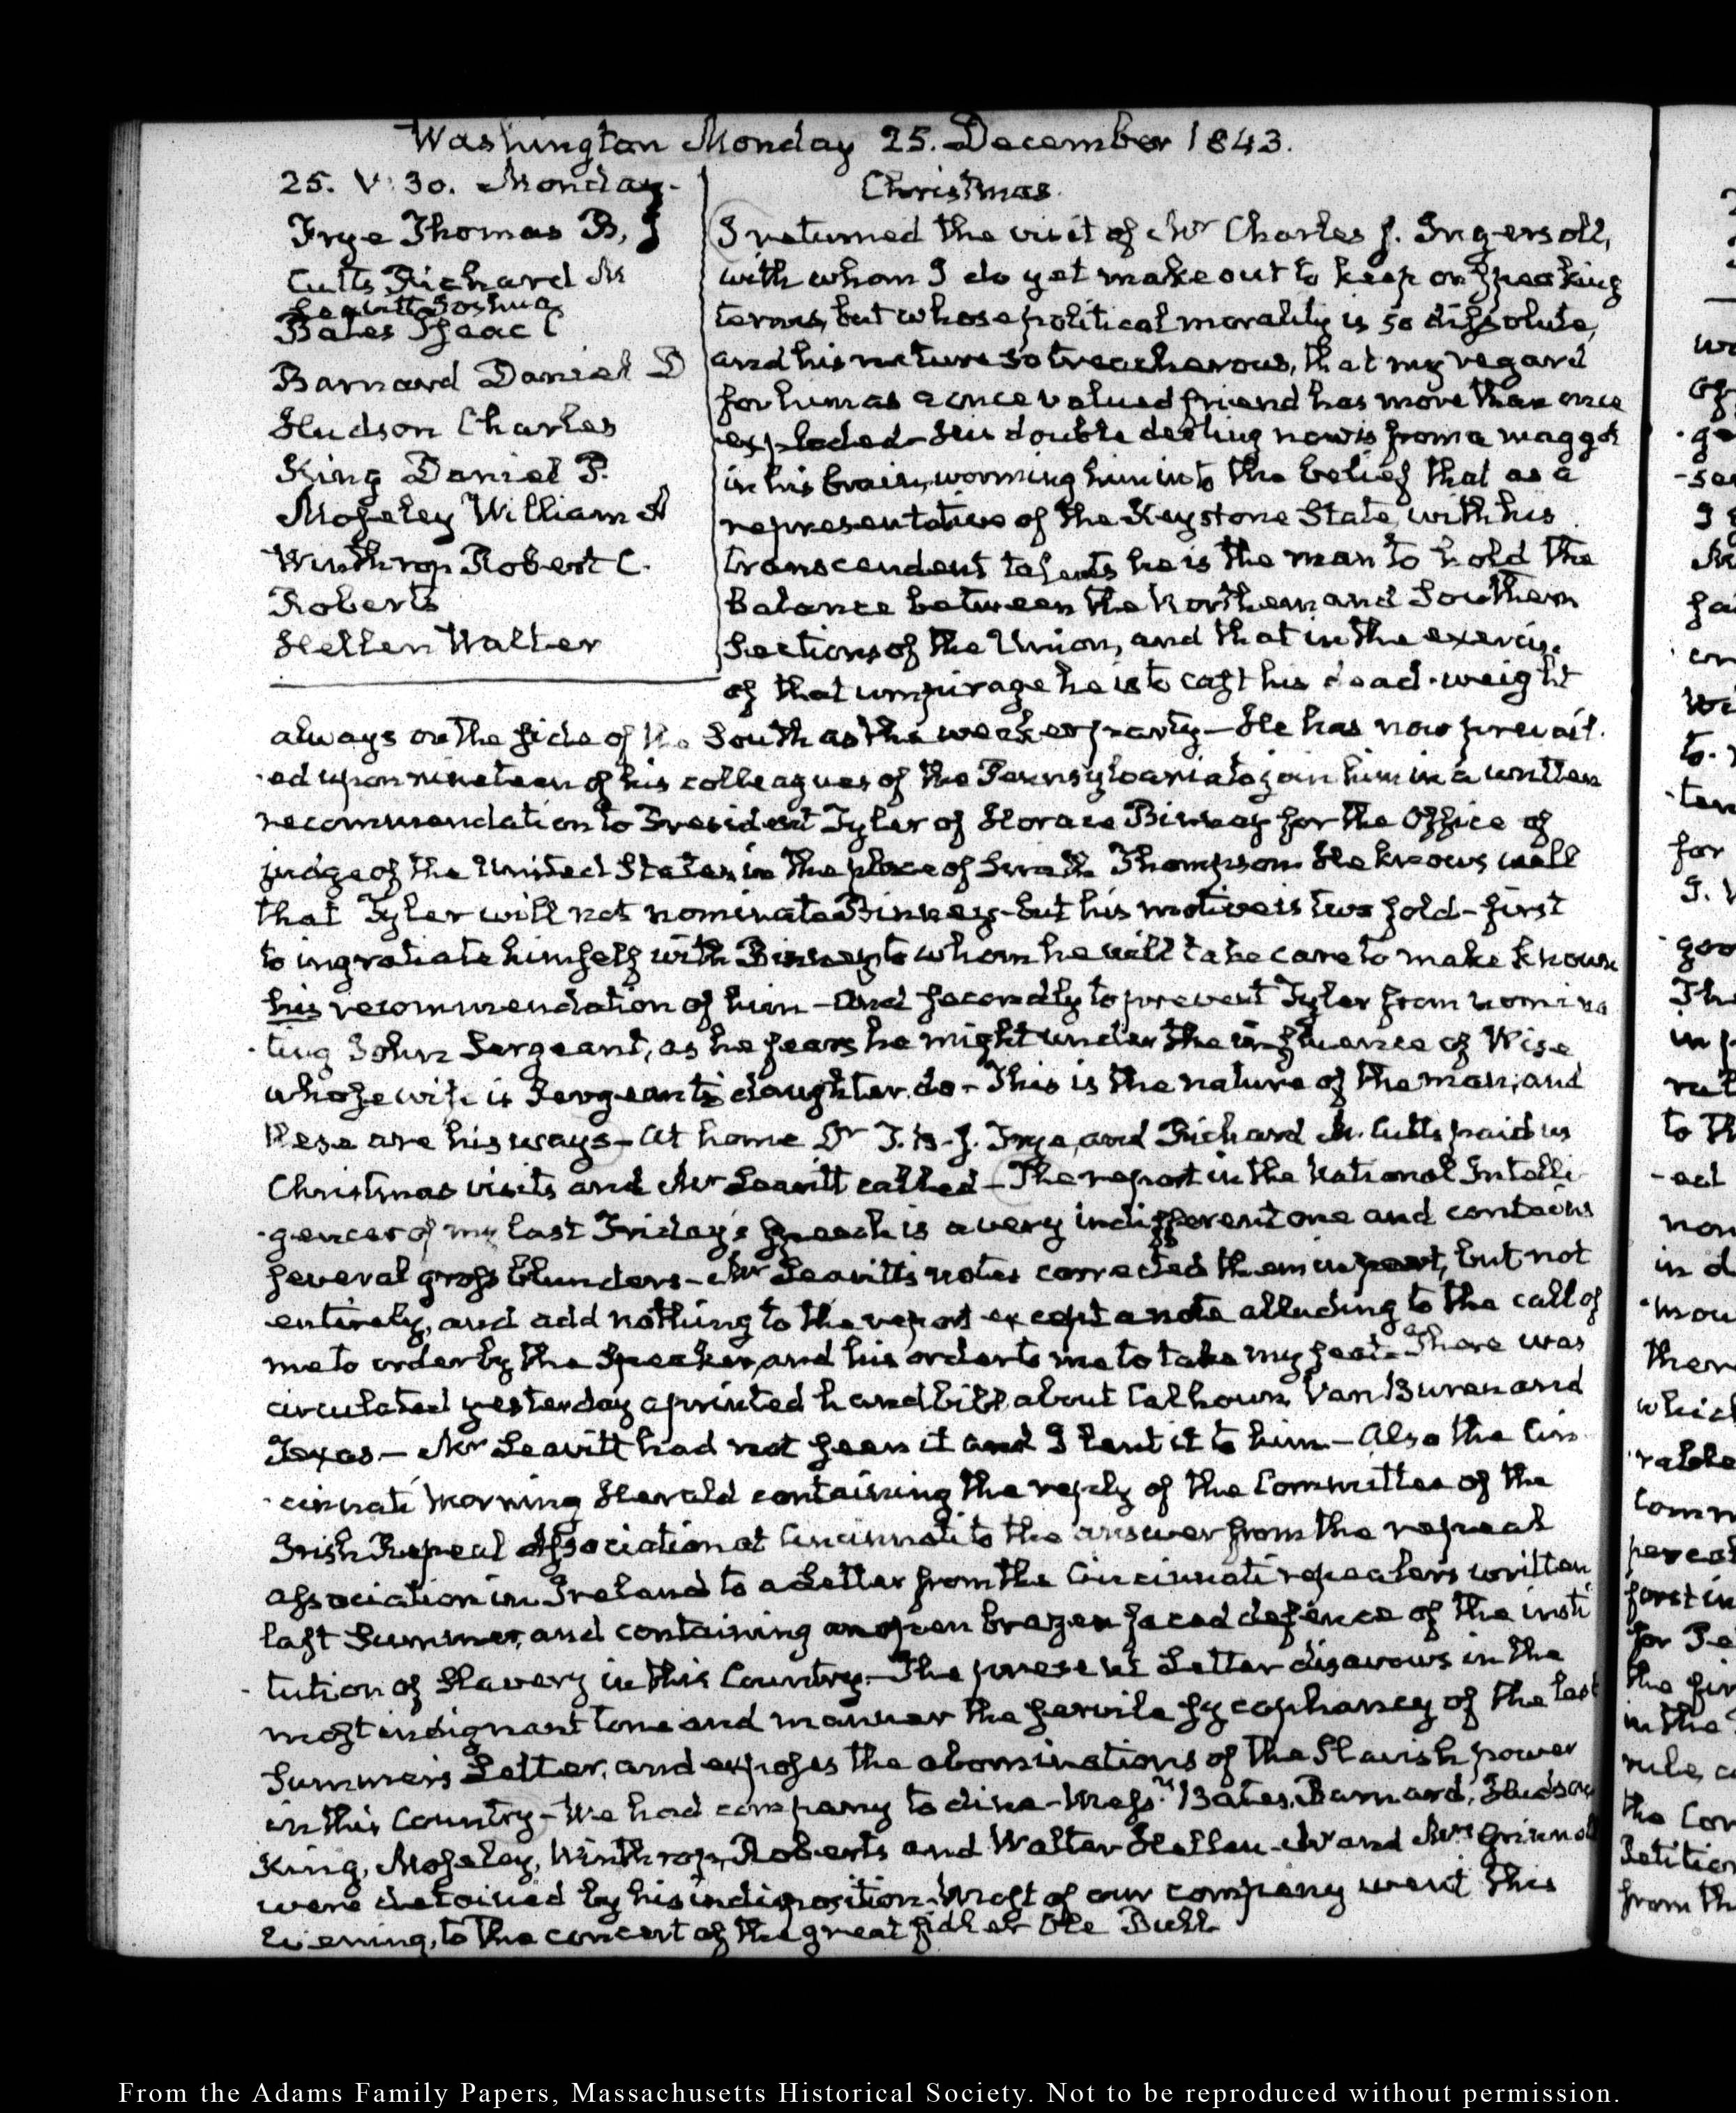 Washington Monday 25. December 1843.
25. V:30. Monday.
Frye Thomas B, J
Cutts Richard M
Leavitt Joshua
Bates Isaac C
Barnard Daniel D
Hudson Charles
King Daniel P.
Moseley William A
Winthrop Robert C.
Roberts
Hellen Walter
Christmas.
I returned the visit of Mr Charles J. Ingersoll,
with whom I do yet make out to keep on speaking
terms, but whose political morality is so dissolute,
and his nature so treacherous, that my regard
for him as a once valued friend has more than once
exploded - His double dealing now is from a maggot
in his brain, worming him into the belief that as a
representative of the Keystone State, with his
transcendent talents he is the man to hold the
Balance between the Northern and Southern
Sections of the Union, and that in the exercise
of that umpirage he is to cast his dead-weight
always on the side of the South as the weaker party - He has now prevail.
-ed upon nineteen of his colleagues of the Pennsylvania to join him in a written
recommendation to President Tyler of Horace Binney for the Office of
judge of the United States in the place of Smith Thompson He knows well
that Tyler will not nominate Binney - but his motive is two fold - first
to ingratiate himself with Binney to whom he will take care to make known
his recommendation of him - And secondly to prevent Tyler from nomina
-ting John Sergeant, as he fears he might under the influence of Wise
whose wife is Sergeant's daughter, do - This is the nature of the man, and
these are his ways - At home Dr T. B. J. Frye, and Richard M. Cutts paid us
Christmas visits and Mr Leavitt called - The report in the National Intelli
-gencer of my last Friday's speech is a very indifferent one and contains
several gross blunders - Mr Leavitt's notes corrected them in part, but not
entirely, and add nothing to the report except a note alluding to the call of
me to order by the Speaker, and his order to me to take my seat - There was
circulated yesterday a printed handbill about Calhoun, Van Buren and
Texas - Mr Leavitt had not seen it and I lent it to him - Also the Cin
-cinnati Morning Herald containing the reply of the Committee of the
Irish Repeal Association at Cincinnati to the answer from the repeal
association in Ireland to a Letter from the Cincinnati repealers written
last Summer, and containing an open brazen faced defence of the insti
-tution of Slavery in this Country. - The present Letter disavows in the
most indignant tone and manner the servile sycophancy of the last
Summer's Letter, and exposes the abominations of the Slavish power
in this Country - We had company to dine - Messrs Bates, Barnard, Hudson
King, Moseley, Winthrop, Roberts and Walter Hellen - Mr and Mrs Grinnell
were detained by his indisposition. Most of our company went this
Evening, to the concert of the great fidler Ole Bull